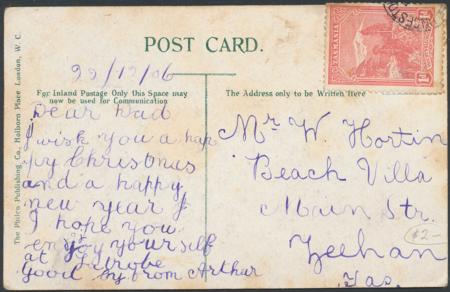 POST CARD.
22/12/06
For Inland Postage Only this Space may
now be used for Communication
The Address only to be Written Here
The Philco Publishing Co., Holborn Place London, W. C.
TASMANIA
1d
Dear Dad
I wish you a hap
py Christmas
and a happy
new year I
I hope you
enjoy yourself
at Latrobe
good by from Arthur
Mr W. Hortin
Beach Villa
Main Str.
Zeehan
Tas.
£2-